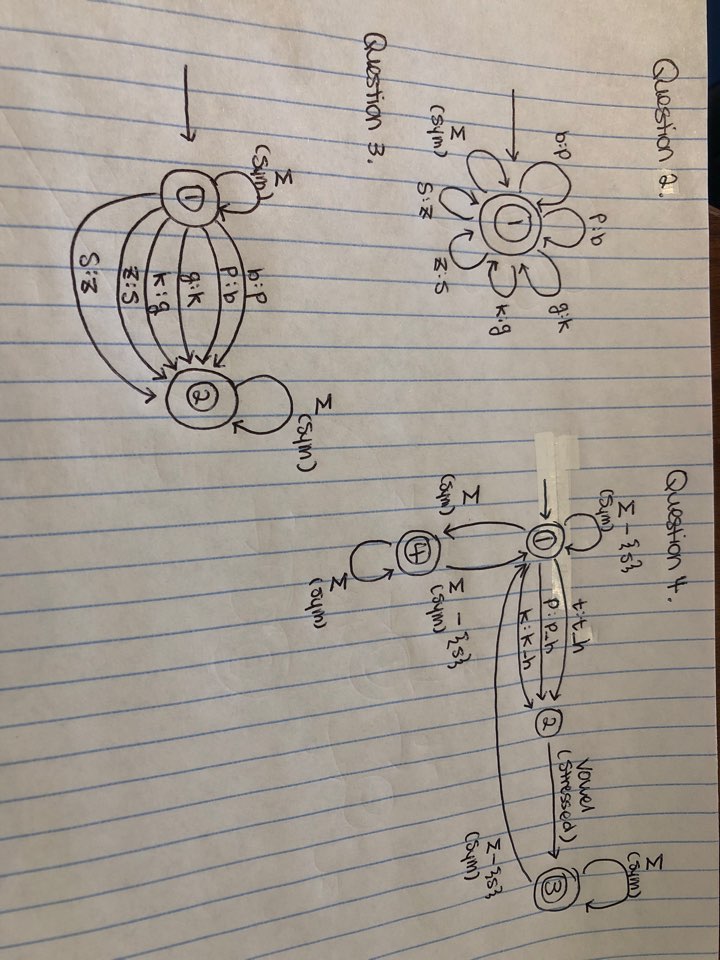 Question 2.
b:p
p:b
g:k
1
k:g
z:s
s:z
Σ
(sym)
Question 3.
Σ
(sym)
1
b:p
p:b
g:k
k:g
z:s
s:z
2
Σ
(sym)
Question 4.
Σ - {s}
(sym)
1
t:t_h
p:p_h
k:k_h
2
vowel
(stressed)
3
Σ
(sym)
Σ - {s}
(sym)
Σ
(sym)
4
Σ - {s}
(sym)
Σ
(sym)